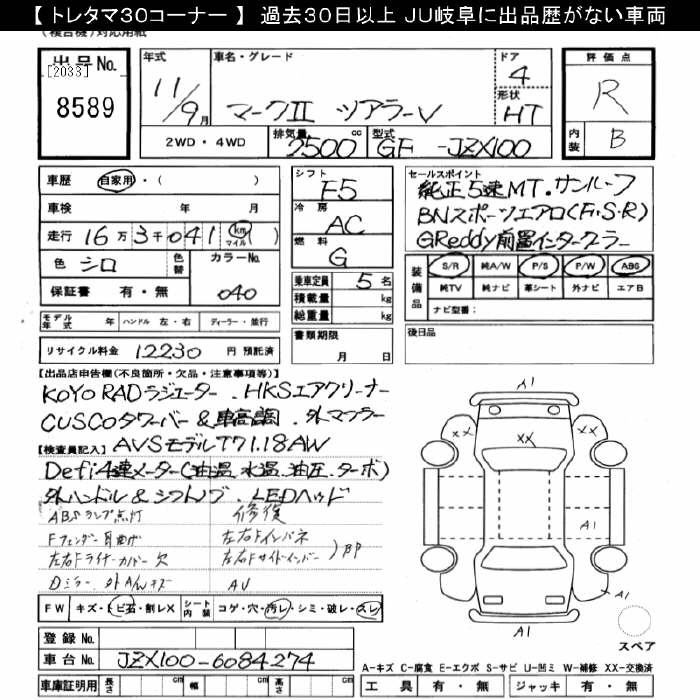 【トレタマ30コーナー】 過去30日以上 JU岐阜に出品歴がない車両
(複合機)対応用紙
出品No. [2033] 8589
年式 11/9月 車名・グレード マークII ツアラーV ドア 4 形状 HT
評価点 R 内装 B
2WD・4WD 排気量 2500 cc 型式 GF -JZX100
車歴 自家用・( )
車検 年 月
走行 16万3千041 km マイル ( )
色 シロ 色替 カラーNo. 040
保証書 有・無
シフト F5
冷房 AC
燃料 G
乗車定員 5名
積載量 kg
総重量 kg
書類期限 月 日
セールスポイント
純正5速MT.サンルーフ
BNスポーツエアロ(F.S.R)
GReddy前置インタークーラー
装備品 S/R 純A/W P/S P/W ABS
純TV 純ナビ 革シート 外ナビ エアB
ナビ型番:
後日品
モデル年式 年 ハンドル 左・右 ディーラー・並行
リサイクル料金 12230 円 預託済
【出品店申告欄(不良箇所・欠品・注意事項等)】
KOYO RADラジエーター.HKSエアクリーナー
CUSCOタワーバー&車高調.外マフラー
【検査員記入】 AVSモデルT7 1.18AW
Defi4連メーター(油温.水温.油圧.ターボ)
外ハンドル&シフトノブ.LEDヘッド
ABSランプ点灯 修復
Fフェンダー耳曲げ 左右Fインパネ
左右Fライナーカバー欠 左右Fサイドインバー )BP
Dミラー.外Aんキズ AU
FW キズ・トビ石・割レX シート内装 コゲ・穴・汚レ・シミ・破レ・スレ
登録No.
車台No. JZX100-6084274
車庫証明用 長さ cm 幅 cm 高さ cm
A1
XX
XX
XX
A1
A1
A1
スペア
A-キズ C-腐食 E-エクボ S-サビ U-凹ミ W-補修 XX-交換済
工具 有・無 ジャッキ 有・無